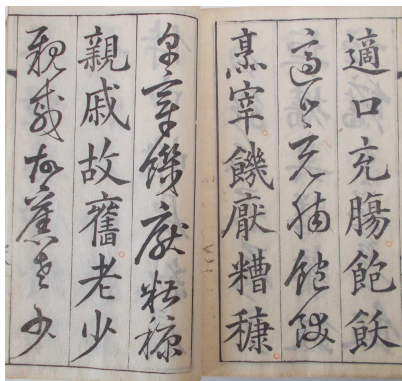 適口充膓飽飫
適口充膓飽飫
烹宰饑厭糟糠
烹宰饑厭糟糠
親戚故舊老少
親戚故舊老少